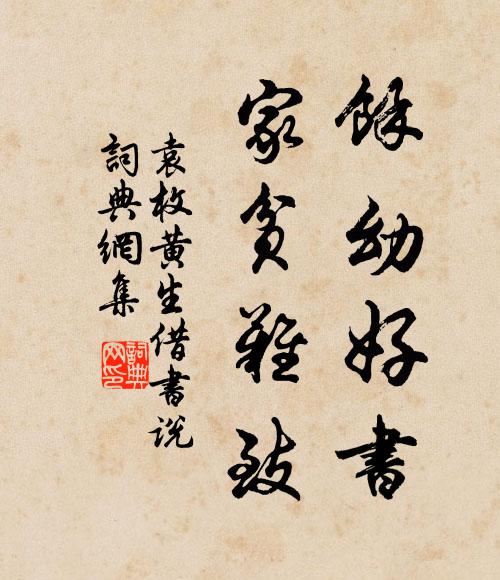 餘幼好書
家貧難致
袁枚黃生借書説
詞典網集
詞典網印